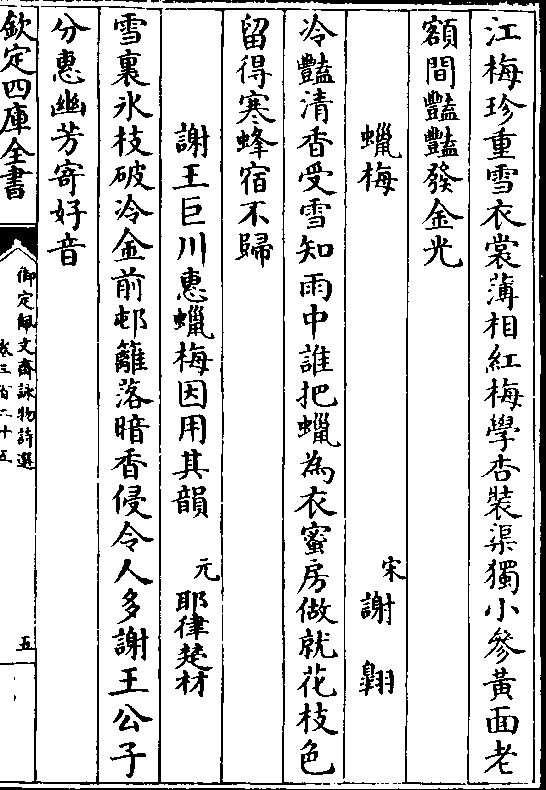 江梅珍重雪衣裳薄相紅梅學杏裝渠獨小參黃面老
額間豔豔發金光
蠟梅 宋 謝翺
冷豔清香受雪知雨中誰把蠟為衣蜜房做就花枝色
留得寒蜂宿不歸
謝王巨川惠蠟梅因用其韻 元 耶律楚材
雪裏氷枝破冷金前邨籬落暗香侵令人多謝王公子
分惠幽芳寄好音
欽定四庫全書
御定佩文齋詠物詩選
卷三百二十五
五